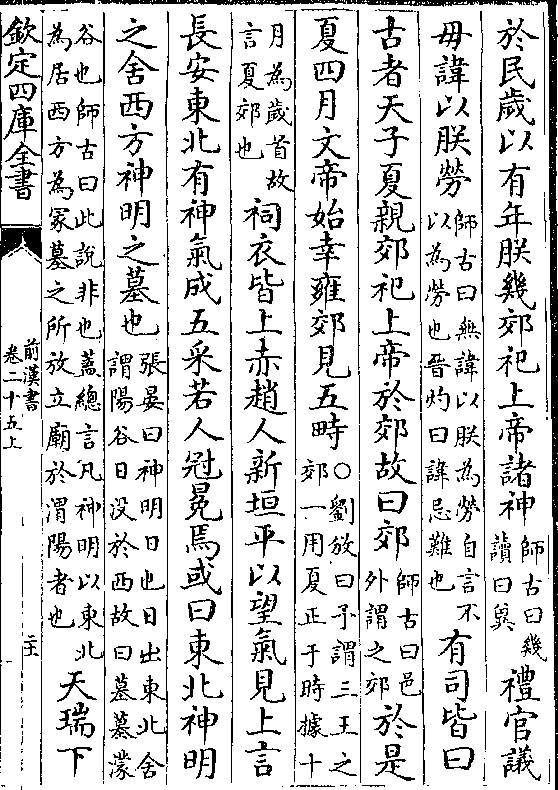 於民歲以有年朕幾郊祀上帝諸神師古曰幾讀曰冀禮官議
毋諱以朕勞師古曰無諱以朕為勞自言不以為勞也晉灼曰諱忌難也有司皆曰
古者天子夏親郊祀上帝於郊故曰郊師古曰邑外謂之郊於是
夏四月文帝始幸雍郊見五畤○劉攽曰予謂三王之郊一用夏正于時據十
月為歲首故言夏郊也祠衣皆上赤趙人新垣平以望氣見上言
長安東北有神氣成五采若人冠冕焉或曰東北神明
之舍西方神明之墓也張晏曰神明日也日出東北舍謂陽谷日没於西故曰墓墓濛
谷也師古曰此說非也蓋總言凡神明以東北為居西方為冢墓之所故立廟於渭陽者也天瑞下
欽定四庫全書
前漢書
卷二十五上